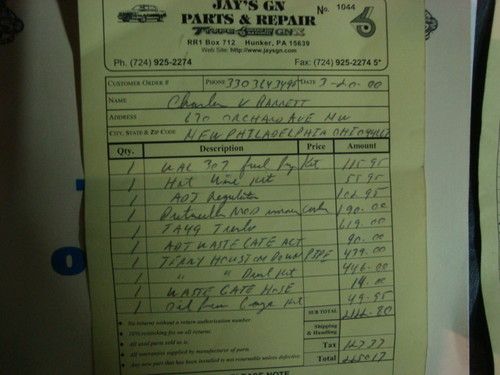 JAY'S GN No. 1044
PARTS & REPAIR
RR1 Box 712 Hunker, PA 15639
Web Site: http://www.jaysgn.com
Ph. (724) 925-2274 Fax: (724) 925-2274 5*
CUSTOMER ORDER # PHONE DATE 3-20-00
NAME Charles V Barrett
ADDRESS 670 ORCHARD AVE NW
CITY, STATE & ZIP CODE NEW PHILADELPHIA OHIO
Qty. Description Price Amount
1 WAL 307 fuel Pump Kit 115.95
1 Hot Wire Kit 55.95
1 ADJ Regulator 102.95
1 190.00
1 619.00
1 ADJ WASTE GATE ACT 90.00
1 TERRY HOUSTON DOWN PIPE 439.00
1 " " Dual Kit 446.00
1 WASTE GATE HOSE 14.00
1 49.95
SUB TOTAL
No returns without a return authorization number. Shipping & Handling
restocking fee on all returns.
All used parts sold as is. Tax
All warranties supplied by manufacturer of parts. Total
Any new part that has been installed is not returnable unless defective.
NOTE